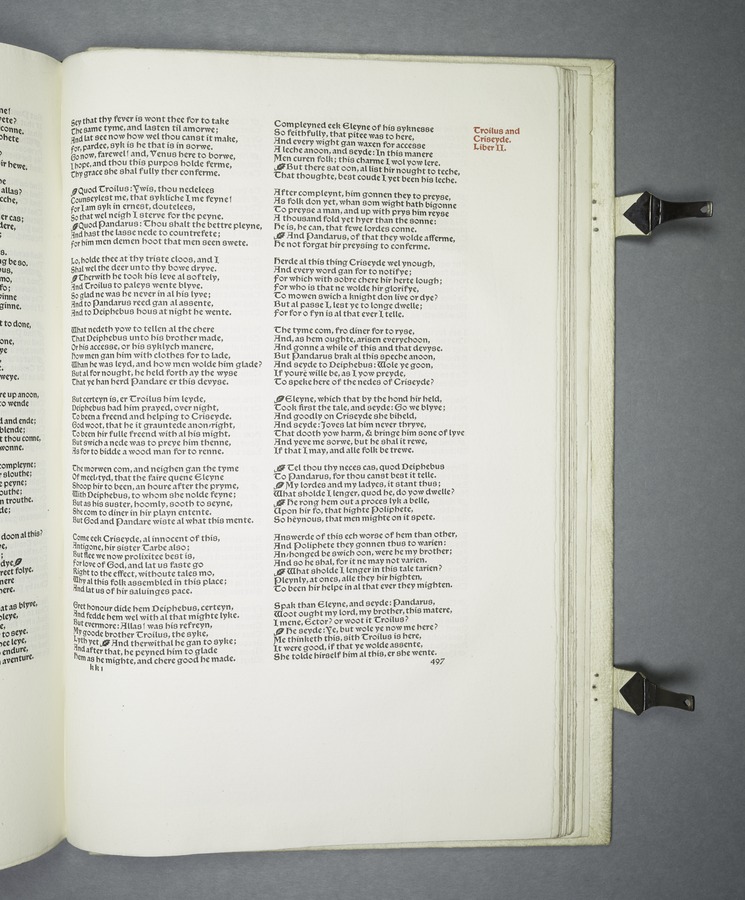 ne!
conne.
ir hewe.
allas?
er cas;
g be so.
t to done,
weye.
re up anoon,
to wende
l and ende;
blende;
t thou conne,
wonne.
compleyne;
slouthe;
peyne;
outhe;
n trouthe.
doon al this?
reet folye.
nere
at as blyve,
to seye.
endure,
aventure.
Sey that thy fever is wont thee for to take
The same tyme, and lasten til amorwe;
And lat see now how wel thou canst it make,
For, pardee, syk is he that is in sorwe.
Go now, farewel! and, Venus here to borwe,
I hope, and thou this purpos holde ferme,
Thy grace she shal fully ther conferme.
Quod Troilus: Ywis, thou nedelees
Counseylest me, that sykliche I me feyne!
For I am syk in ernest, doutelees,
So that wel neigh I sterve for the peyne.
Quod Pandarus: Thou shalt the bettre pleyne,
And hast the lasse nede to countrefete;
For him men demen hoot that men seen swete.
Lo, holde thee at thy triste cloos, and I
Shal wel the deer unto thy bowe dryve.
Therwith he took his leve al softely,
And Troilus to paleys wente blyve.
So glad ne was he never in al his lyve;
And to Pandarus reed gan al assente,
And to Deiphebus hous at night he wente.
What nedeth yow to tellen al the chere
That Deiphebus unto his brother made,
Or his accesse, or his syklych manere,
How men gan him with clothes for to lade,
Whan he was leyd, and how men wolde him glade?
But al for nought, he held forth ay the wyse
That ye han herd Pandare er this devyse.
But certeyn is, er Troilus him leyde,
Deiphebus had him prayed, over night,
To been a freend and helping to Criseyde.
God woot, that he it grauntede anon-right,
To been hir fulle freend with al his might.
But swich a nede was to preye him thenne,
As for to bidde a wood man for to renne.
The morwen com, and neighen gan the tyme
Of meel-tyd, that the faire quene Eleyne
Shoop hir to been, an houre after the pryme,
With Deiphebus, to whom she nolde feyne;
But as his suster, hoomly, sooth to seyne,
She com to diner in hir playn entente.
But God and Pandare wiste al what this mente.
Come eek Criseyde, al innocent of this,
Antigone, hir sister Tarbe also;
But flee we now prolixitee best is,
For love of God, and lat us faste go
Right to the effect, withoute tales mo,
Why al this folk assembled in this place;
And lat us of hir saluinges pace.
Gret honour dide hem Deiphebus, certeyn,
And fedde hem wel with al that mighte lyke.
But evermore: Allas! was his refreyn,
My goode brother Troilus, the syke,
Lyth yet. And therwithal he gan to syke;
And after that, he peyned him to glade
Hem as he mighte, and chere good he made.
kk1
Compleyned eek Eleyne of his syknesse
So feithfully, that pitee was to here,
And every wight gan waxen for accesse
A leche anoon, and seyde: In this manere
Men curen folk; this charme I wol yow lere.
But there sat oon, al list hir nought to teche,
That thoughte, best coude I yet been his leche.
After compleynt, him gonnen they to preyse,
As folk don yet, whan som wight hath bigonne
To preyse a man, and up with prys him reyse
A thousand fold yet hyer than the sonne:
He is, he can, that fewe lordes conne.
And Pandarus, of that they wolde afferme,
He not forgat hir preysing to conferme.
Herde al this thing Criseyde wel ynough,
And every word gan for to notifye;
For which with sobre chere hir herte lough;
For who is that ne wolde hir glorifye,
To mowen swich a knight don live or dye?
But al passe I, lest ye to longe dwelle;
For for o fyn is al that ever I telle.
The tyme com, fro diner for to ryse,
And, as hem oughte, arisen everychoon,
And gonne a while of this and that devyse.
But Pandarus brak al this speche anoon,
And seyde to Deiphebus: Wole ye goon,
If youre wille be, as I yow preyde,
To speke here of the nedes of Criseyde?
Eleyne, which that by the hond hir held,
Took first the tale, and seyde: Go we blyve;
And goodly on Criseyde she biheld,
And seyde: Joves lat him never thryve,
That dooth yow harm, & bringe him sone of lyve
And yeve me sorwe, but he shal it rewe,
If that I may, and alle folk be trewe.
Tel thou thy neces cas, quod Deiphebus
To Pandarus, for thou canst best it telle.
My lordes and my ladyes, it stant thus;
What sholde I lenger, quod he, do yow dwelle?
He rong hem out a proces lyk a belle,
Upon hir fo, that highte Poliphete,
So heynous, that men mighte on it spete.
Answerde of this ech worse of hem than other,
And Poliphete they gonnen thus to warien:
An-honged be swich oon, were he my brother;
And so he shal, for it ne may not varien.
What sholde I lenger in this tale tarien?
Pleynly, at ones, alle they hir highten,
To been hir helpe in al that ever they mighten.
Spak than Eleyne, and seyde: Pandarus,
Woot ought my lord, my brother, this matere,
I mene, Ector? or woot it Troilus?
He seyde: Ye, but wole ye now me here?
Me thinketh this, sith Troilus is here,
It were good, if that ye wolde assente,
She tolde hirself him al this, er she wente.
497
Troilus and
Criseyde.
Liber II.